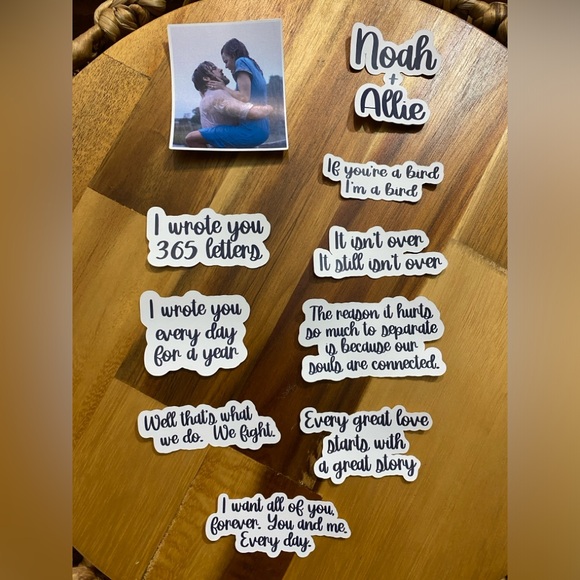 Noah
+
Allie
If you're a bird
I'm a bird
I wrote you
365 letters
It isn't over
It still isn't over
I wrote you
every day
for a year
The reason it hurts
so much to separate
is because our
souls are connected.
Well that's what
we do. We fight.
Every great love
starts with
a great story
I want all of you,
forever. You and me.
Every day.